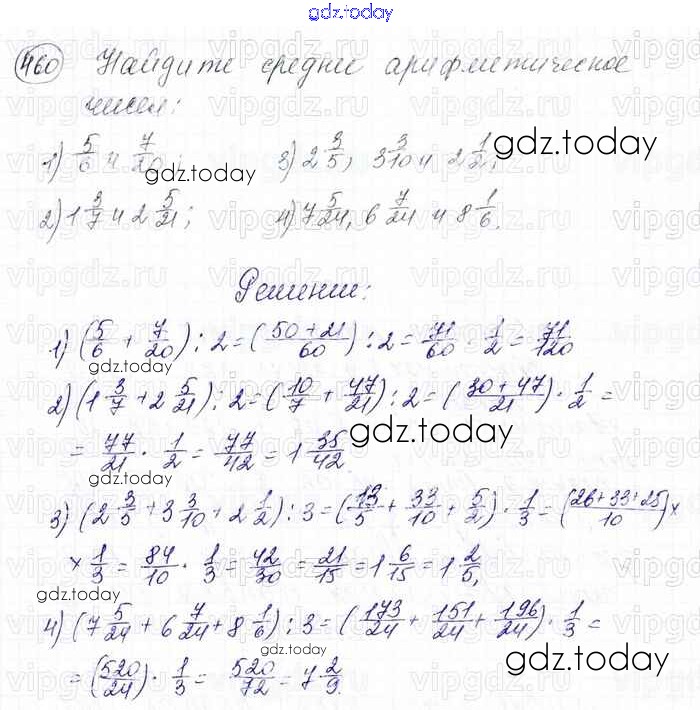 gdz.today
460 Найдите среднее арифметическое
чисел:
1) 5/6 и 7/20; 3) 2 3/5, 3 3/10 и 2 1/2;
gdz.today gdz.today
2) 1 3/7 и 2 5/21; 4) 7 5/24, 6 7/24 и 8 1/6.
Решение:
1) (5/6 + 7/20) : 2 = ((50+21)/60) : 2 = 71/60 · 1/2 = 71/120
gdz.today
2) (1 3/7 + 2 5/21) : 2 = (10/7 + 47/21) : 2 = ((30+47)/21) · 1/2 =
= 77/21 · 1/2 = 77/42 = 1 35/42
gdz.today
gdz.today
3) (2 3/5 + 3 3/10 + 2 1/2) : 3 = (13/5 + 33/10 + 5/2) · 1/3 = ((26+33+25)/10) ×
× 1/3 = 84/10 · 1/3 = 42/30 = 21/15 = 1 6/15 = 1 2/5,
gdz.today
4) (7 5/24 + 6 7/24 + 8 1/6) : 3 = (173/24 + 151/24 + 196/24) · 1/3 =
= (520/24) · 1/3 = 520/72 = 7 2/9.
gdz.today